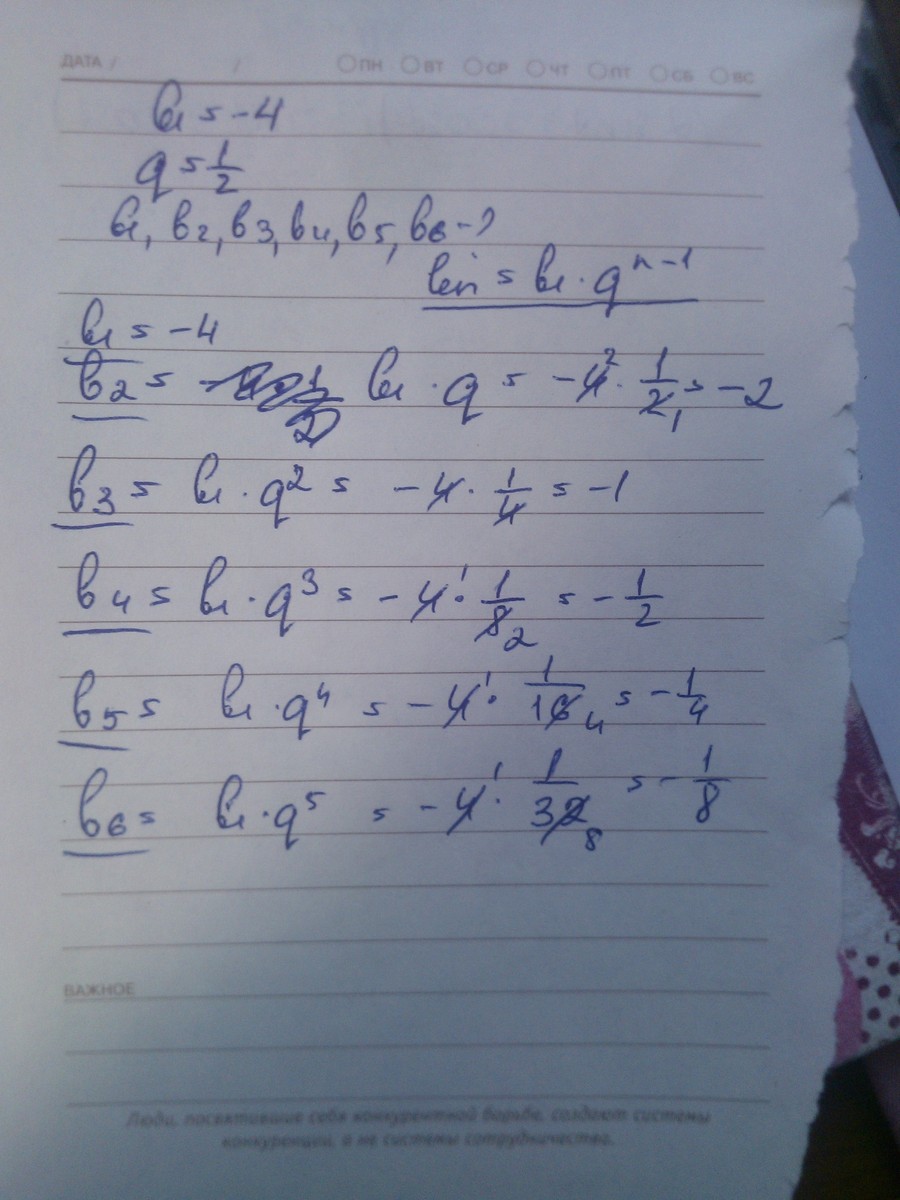 ДАТА / / ПН ВТ СР ЧТ ПТ СБ ВС
b₁ = -4
q = 1/2
b₁, b₂, b₃, b₄, b₅, b₆ - ?
bn = b₁ · qⁿ⁻¹
b₁ = -4
b₂ = b₁ · q = -4 · 1/2 = -2
b₃ = b₁ · q² = -4 · 1/4 = -1
b₄ = b₁ · q³ = -4 · 1/8 = -1/2
b₅ = b₁ · q⁴ = -4 · 1/16 = -1/4
b₆ = b₁ · q⁵ = -4 · 1/32 = -1/8
ВАЖНОЕ
Люди, посвятившие себя конкурентной борьбе, создают системы
конкуренции, а не системы сотрудничества.